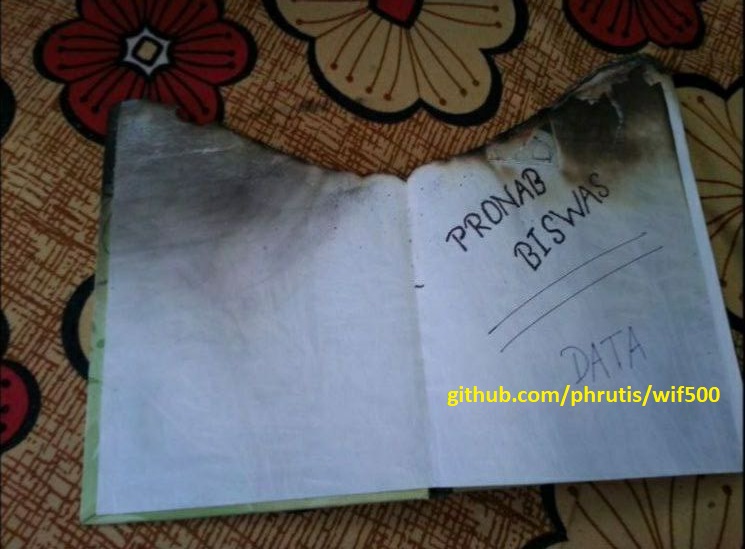 PRONAB
BISWAS
DATA
github.com/phrutis/wif500